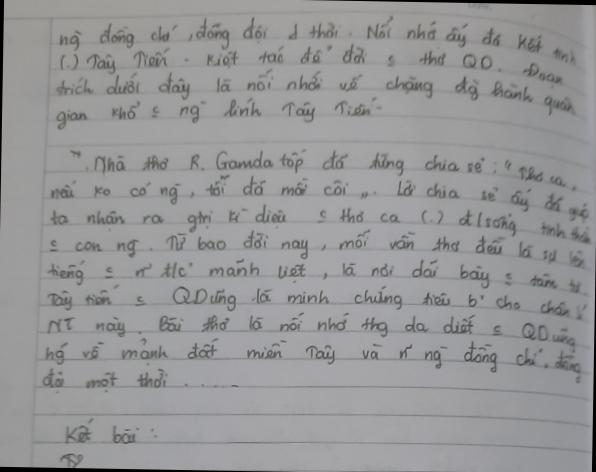 ng đồng chí, đồng đội 1 thời. Nỗi nhớ ấy đã kết tinh
(.) Tây Tiến - kiệt tác để đời c thơ QD. Đoạn
trích dưới đây là nỗi nhớ về chặng đg hành quân
gian khổ c ng lính Tây Tiến.
Nhà thơ R. Gamdatốp đã từng chia sẻ: "Thơ ca,
nếu ko có ng, tôi đã mồ côi". Lời chia sẻ ấy đã giúp
ta nhận ra gtrị kì diệu c thơ ca (.) đ/sống tinh thần
c con ng. Từ bao đời nay, mỗi vần thơ đều là sự lên
tiếng c n~ t/c mãnh liệt, là nơi dãi bày c tâm tư.
Tây tiến c QDũng là minh chứng tiêu b' cho chân lí
NT này. Bài thơ là nỗi nhớ thg da diết c QDũng
hg về mảnh đất miền Tây và n~ ng đồng chí, đồng
đội một thời ......
Kết bài: